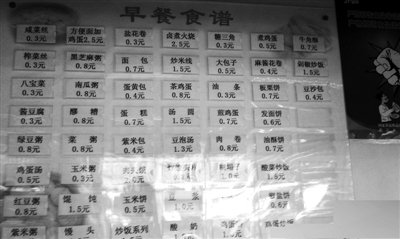 早餐食谱
咸菜丝 方便面加 盐花卷 卤煮火烧 糖三角 煮鸡蛋 牛角酥
0.3元 鸡蛋2.5元 0.3元 2.5元 0.3元 0.7元 0.7元
榨菜丝 黑芝麻粥 面包 炒米线 大包子 麻酱花卷
0.3元 0.8元 0.7元 1.5元 0.7元 0.4元 1.5元
八宝菜 南瓜粥 蛋黄包 茶鸡蛋 油条 板栗饼 豆沙包
0.3元 0.8元 0.4元 0.8元 0.3元 0.7元 0.4元
酱豆腐 醪糟 蛋糕 汤圆 煎鸡蛋 发面饼
0.3元 0.8元 0.7元 1.5元 0.7元 0.6元
绿豆粥 菜粥 紫米包 豆泡汤 肉卷 油酥饼
0.8元 0.8元 0.4元 1.3元 0.8元 0.7元
鸡蛋汤 玉米粥 酸菜炒饭
0.5元 0.3元 2.0元 1.5元
红豆粥 馄饨 玉米饼 豆浆
0.8元 1.5元 0.5元 1.0元 1.5元
紫米粥 馒头 炒饭系列 酸奶 鸡蛋